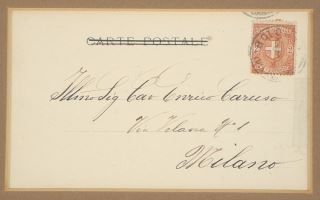 CARTE POSTALE
Illmo Sig Cav Enrico Caruso
Via Velasca N° 1
Milano